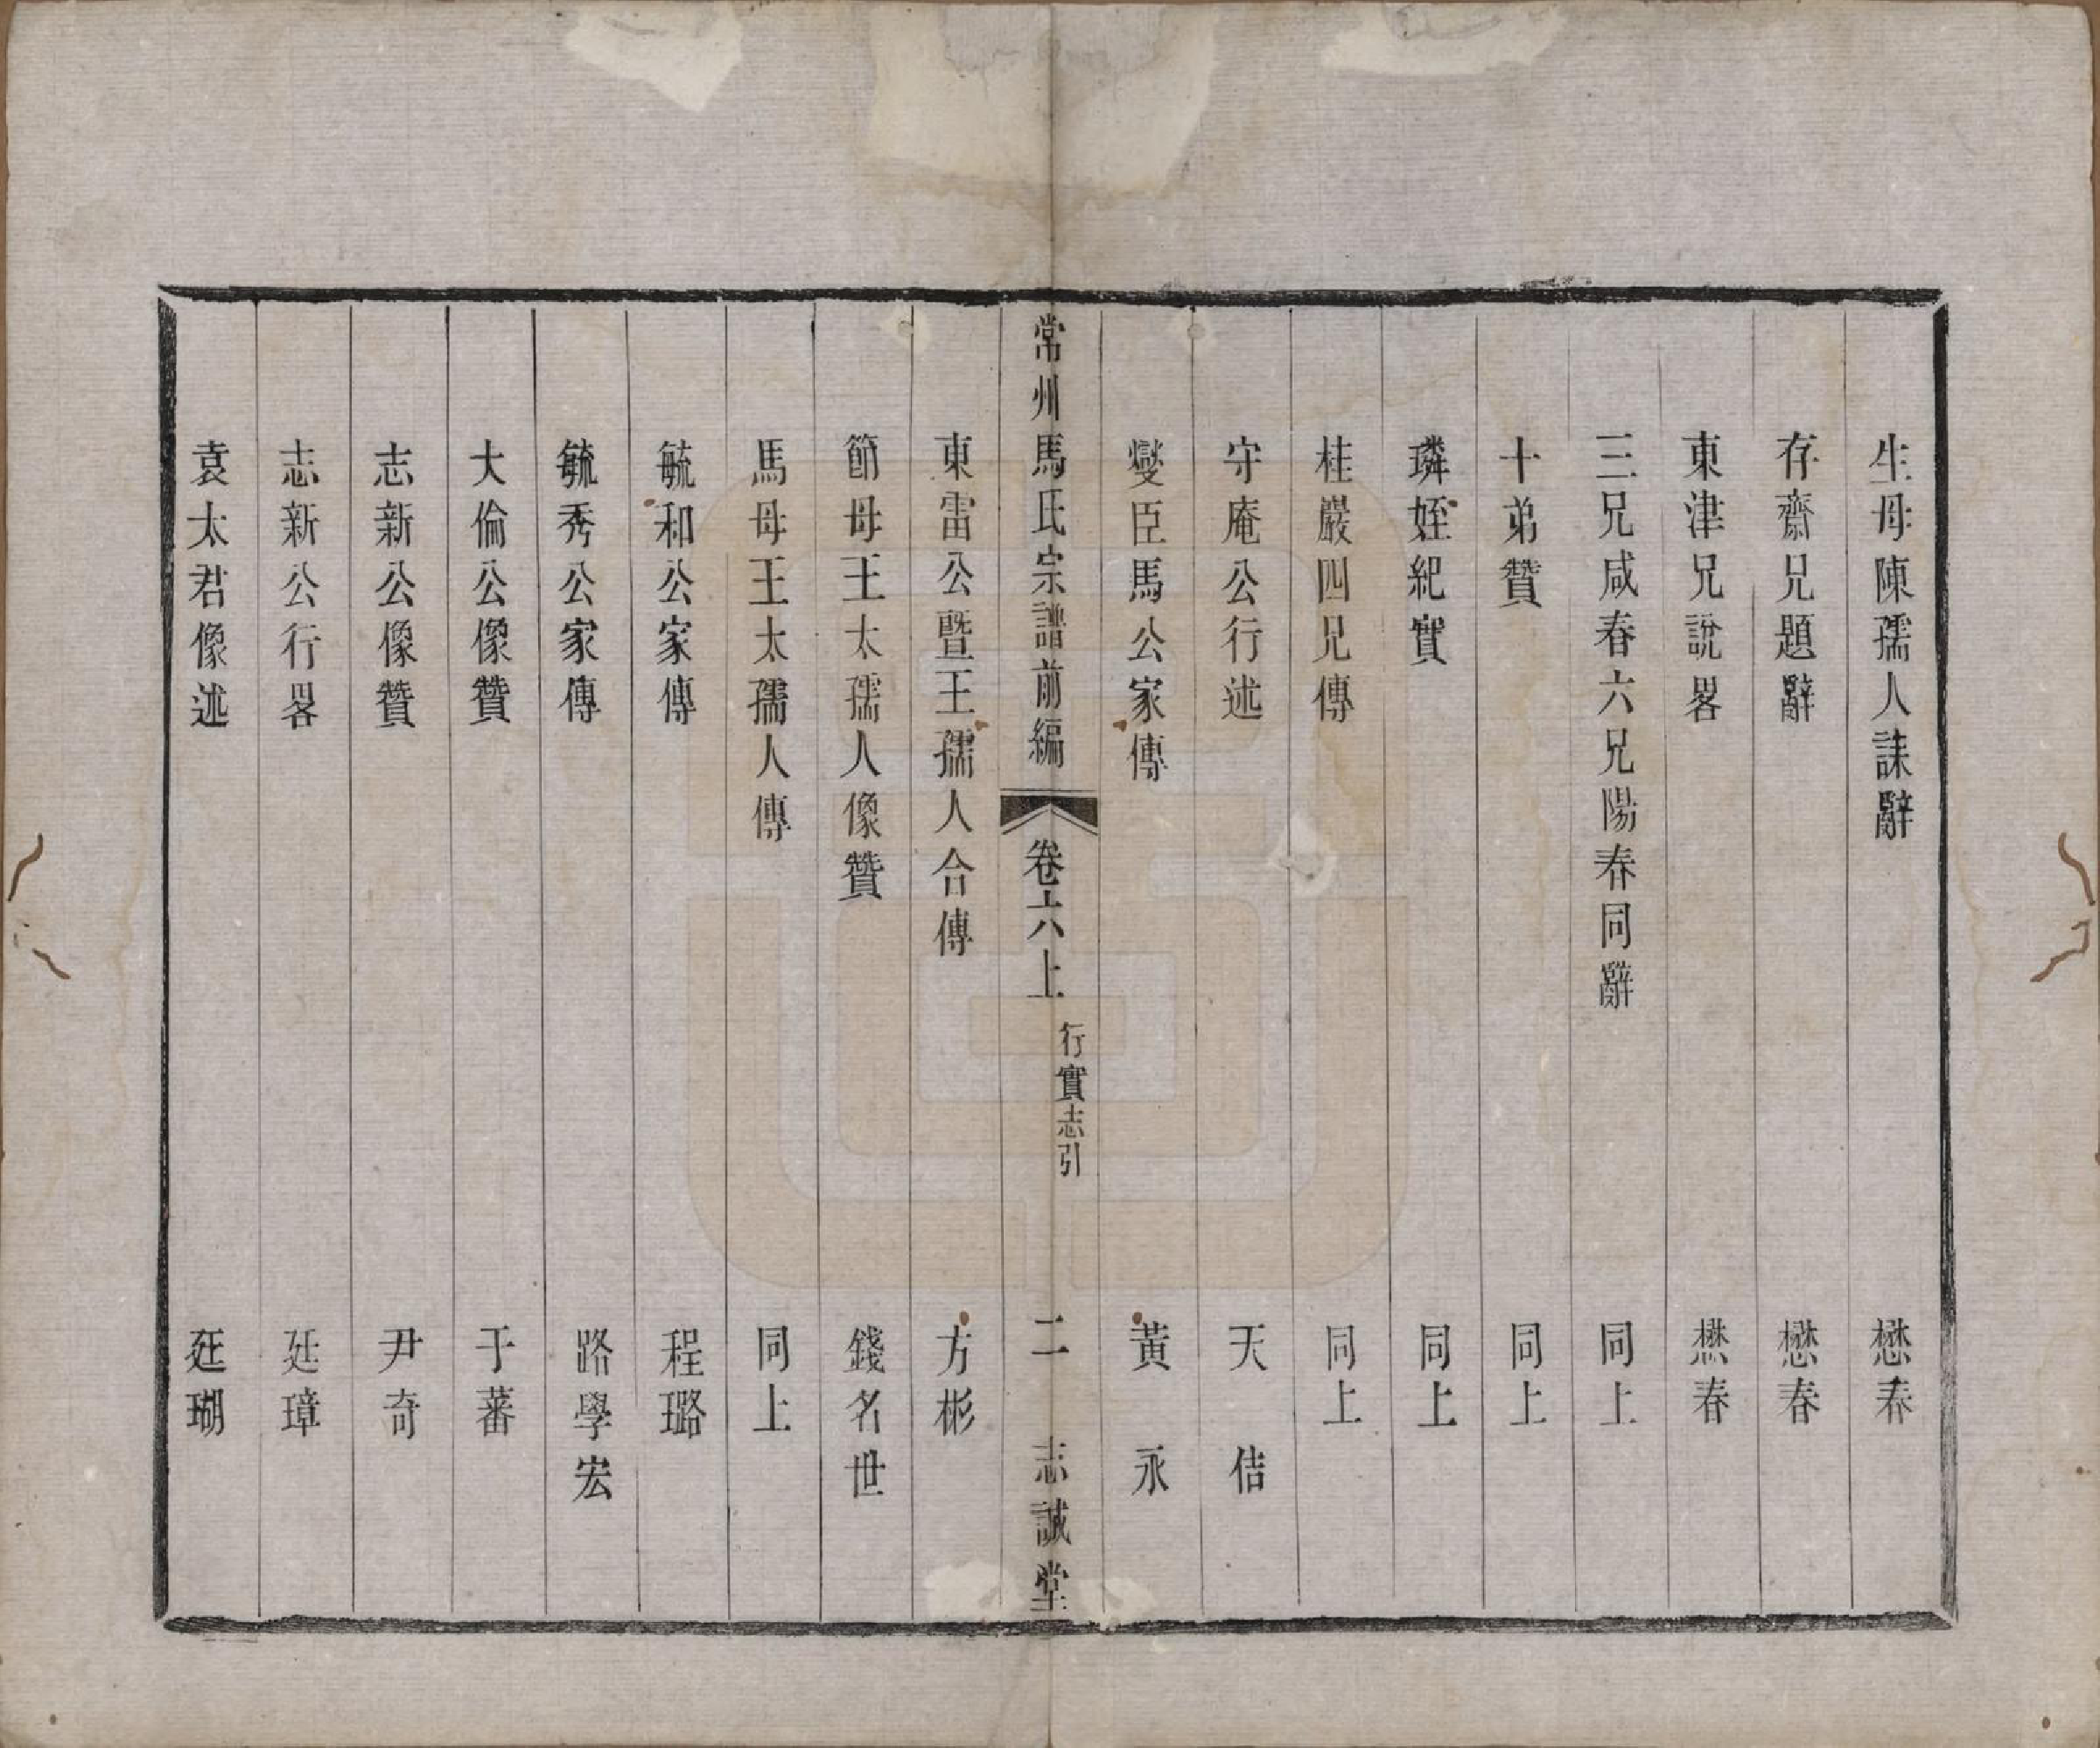 生母陳孺人誄辭 懋春
存齋兄題辭 懋春
東津兄說畧 懋春
三兄咸春六兄陽春同辭 同上
十弟贊 同上
璘姪紀實 同上
桂巖四兄傳 同上
守庵公行述 天佶
燮臣馬公家傳 黃永
常州馬氏宗譜前編 卷六上 行實志引 二 志誠堂
東雷公曁王孺人合傳 方彬
節母王太孺人像贊 錢名世
馬母王太孺人傳 同上
毓和公家傳 程璐
毓秀公家傳 路學宏
大倫公像贊 于蕃
志新公像贊 尹奇
志新公行畧 廷璋
袁太君像述 廷瑚